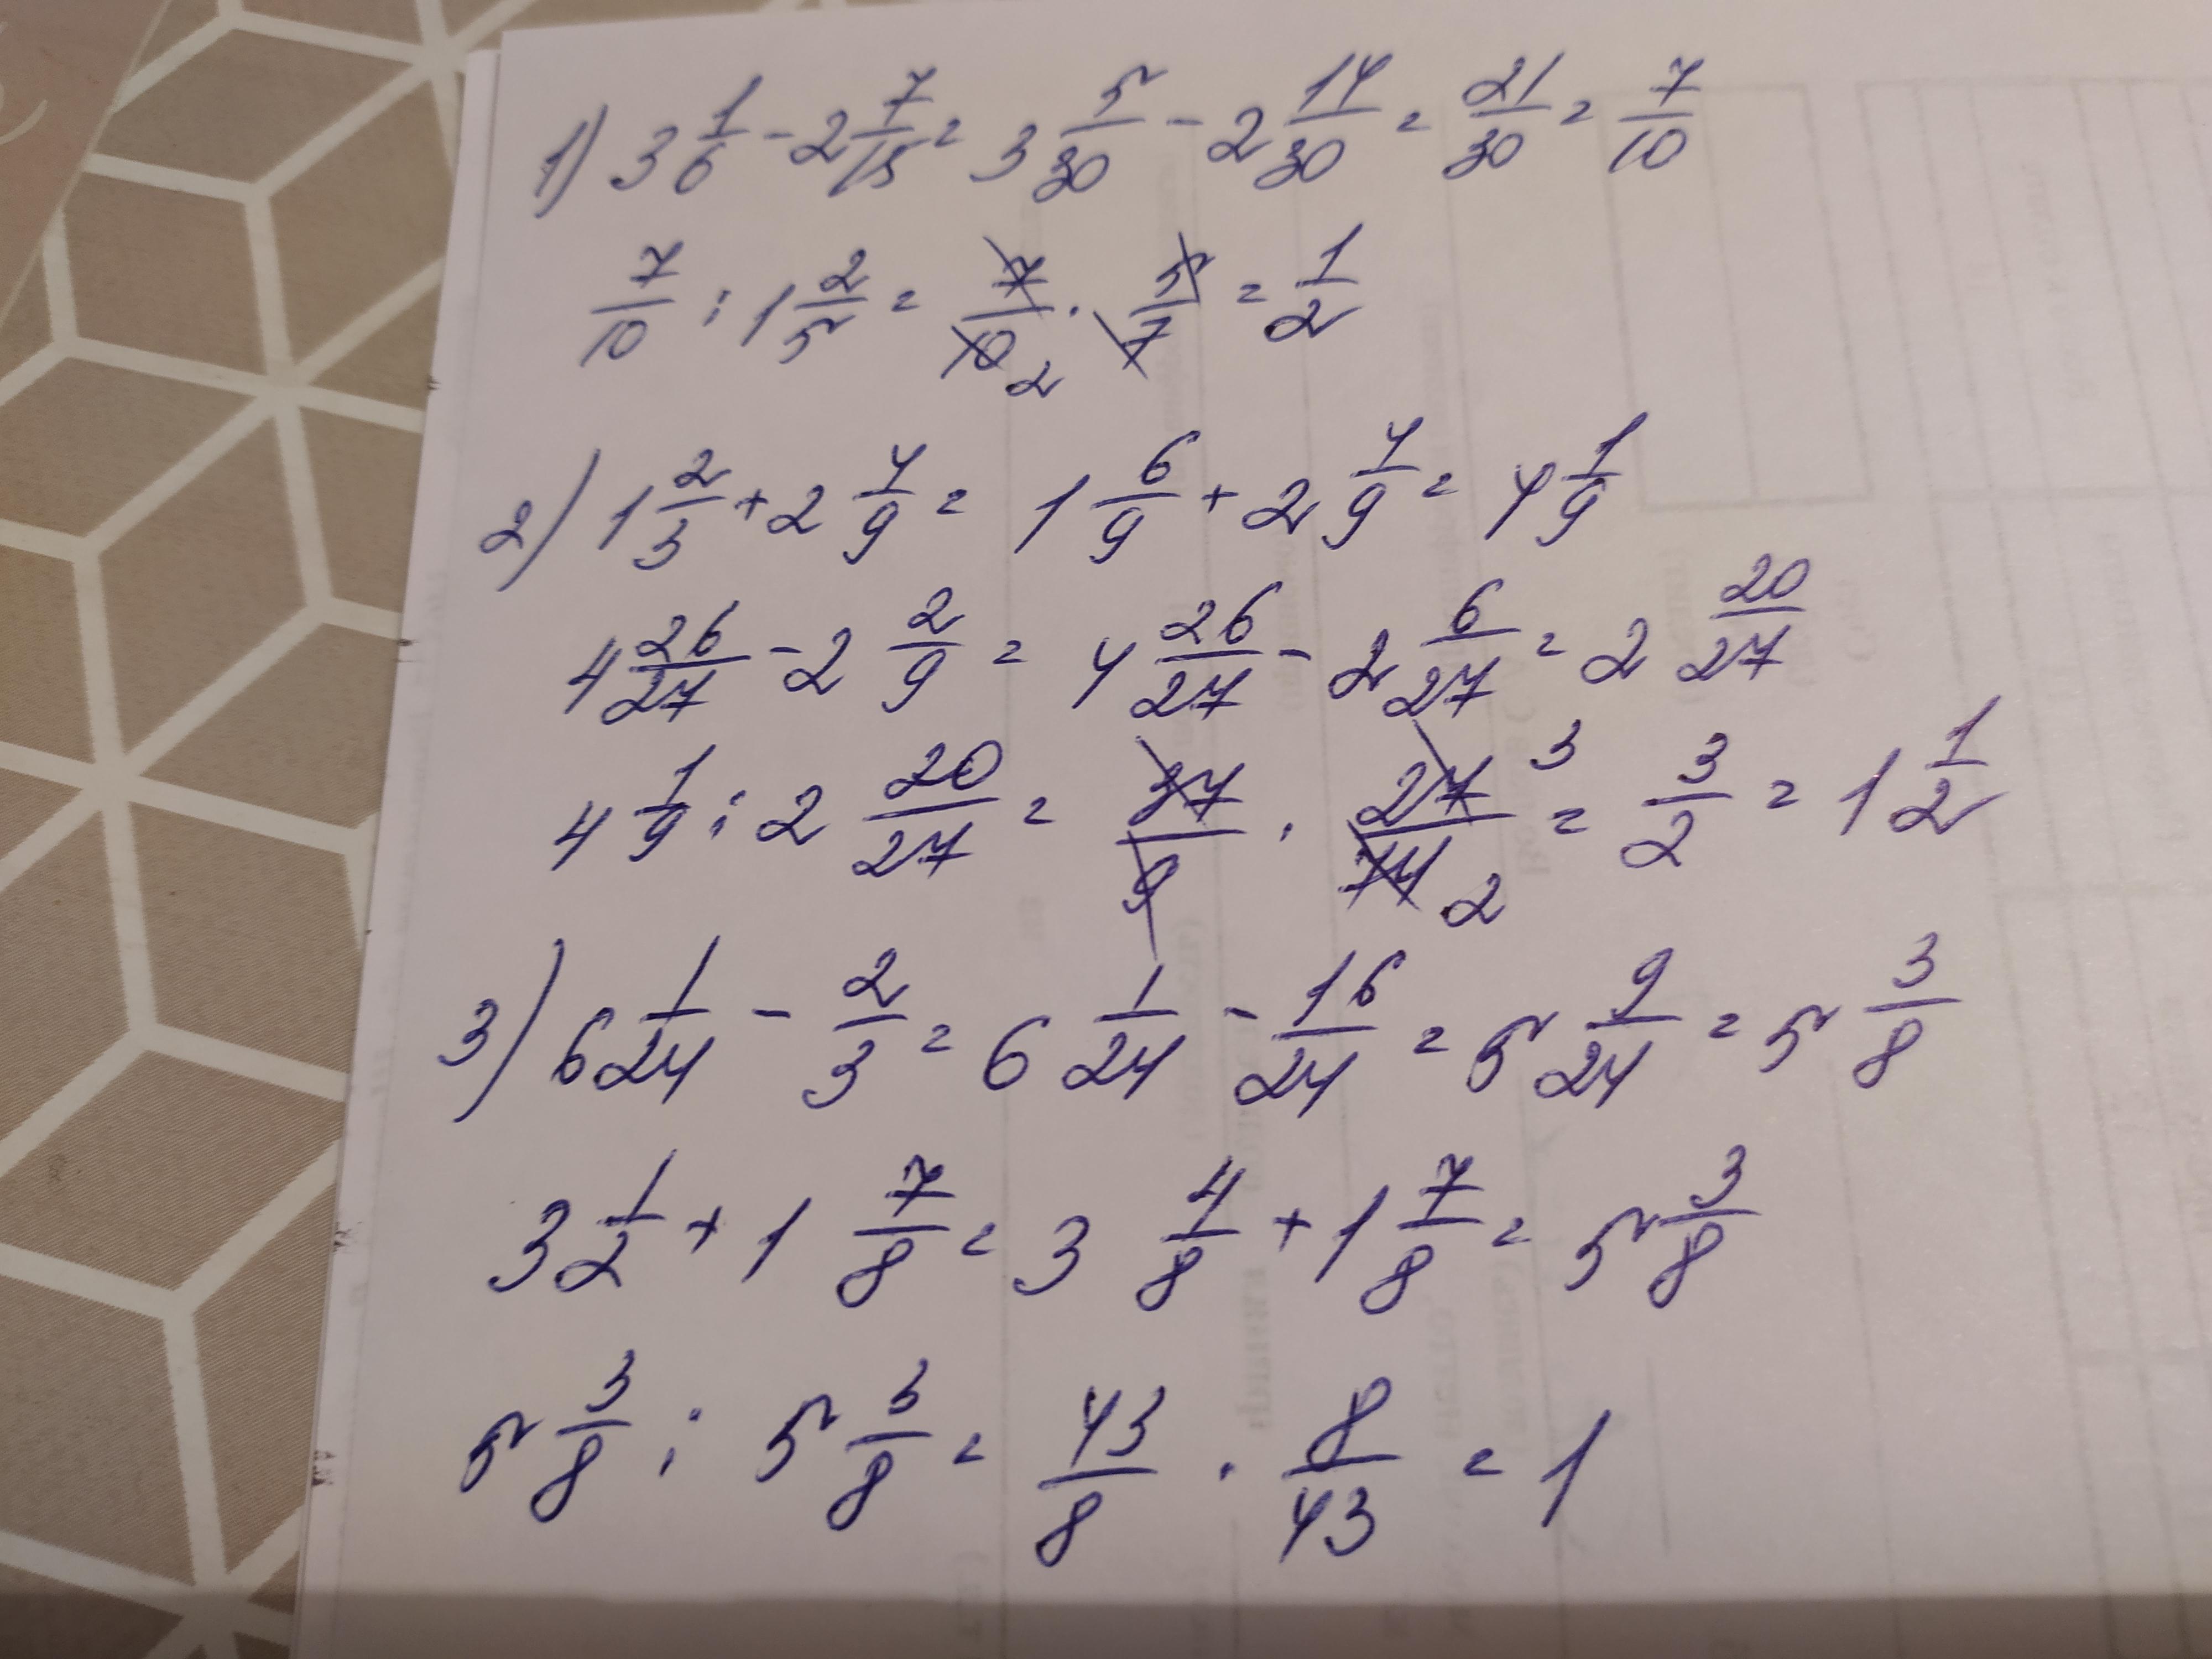 1) 3 1/6 - 2 7/15 = 3 5/30 - 2 14/30 = 21/30 = 7/10
7/10 : 1 2/5 = 7/10 2 · 5/7 = 1/2
2) 1 2/3 + 2 4/9 = 1 6/9 + 2 4/9 = 4 1/9
4 26/27 - 2 2/9 = 4 26/27 - 2 6/27 = 2 20/27
4 1/9 : 2 20/27 = 37/9 · 27 3/74 2 = 3/2 = 1 1/2
3) 6 1/24 - 2/3 = 6 1/24 - 16/24 = 5 9/24 = 5 3/8
3 1/2 + 1 7/8 = 3 4/8 + 1 7/8 = 5 3/8
5 3/8 : 5 3/8 = 43/8 · 8/43 = 1